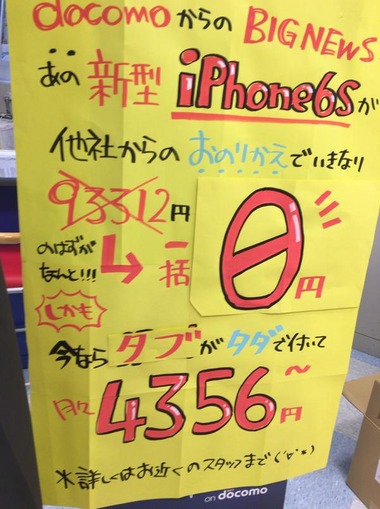 docomoからのBIGNEWS
あの新型iPhone6sが
他社からのおのりかえでいきなり
93312円
のはずが
なんと!!!
一括0円
しかも
今ならタブがタダで付いて
月々4356円~
※詳しくはお近くのスタッフまで(‘∀‘*)
on docomo